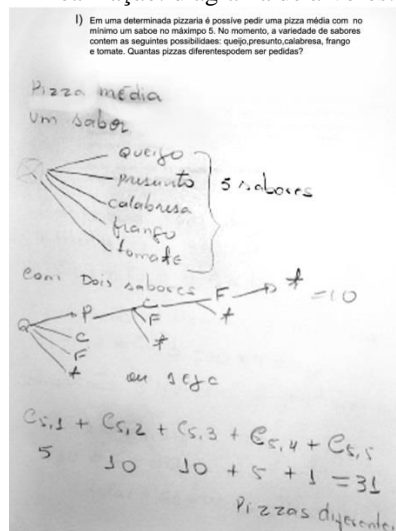 I) Em uma determinada pizzaria é possíve pedir uma pizza média com no
mínimo um saboe no máximpo 5. No momento, a variedade de sabores
contem as seguintes possibilidaes: queijo,presunto,calabresa, frango
e tomate. Quantas pizzas diferentespodem ser pedidas?
Pizza média
um sabor
queijo
presunto
calabresa
frango
tomate
5 sabores
Com Dois sabores
Q P C F t = 10
C F t
F t
C
F
t
ou seja
C5,1 + C5,2 + C5,3 + C5,4 + C5,5
5 10 10 + 5 + 1 = 31
Pizzas diferentes